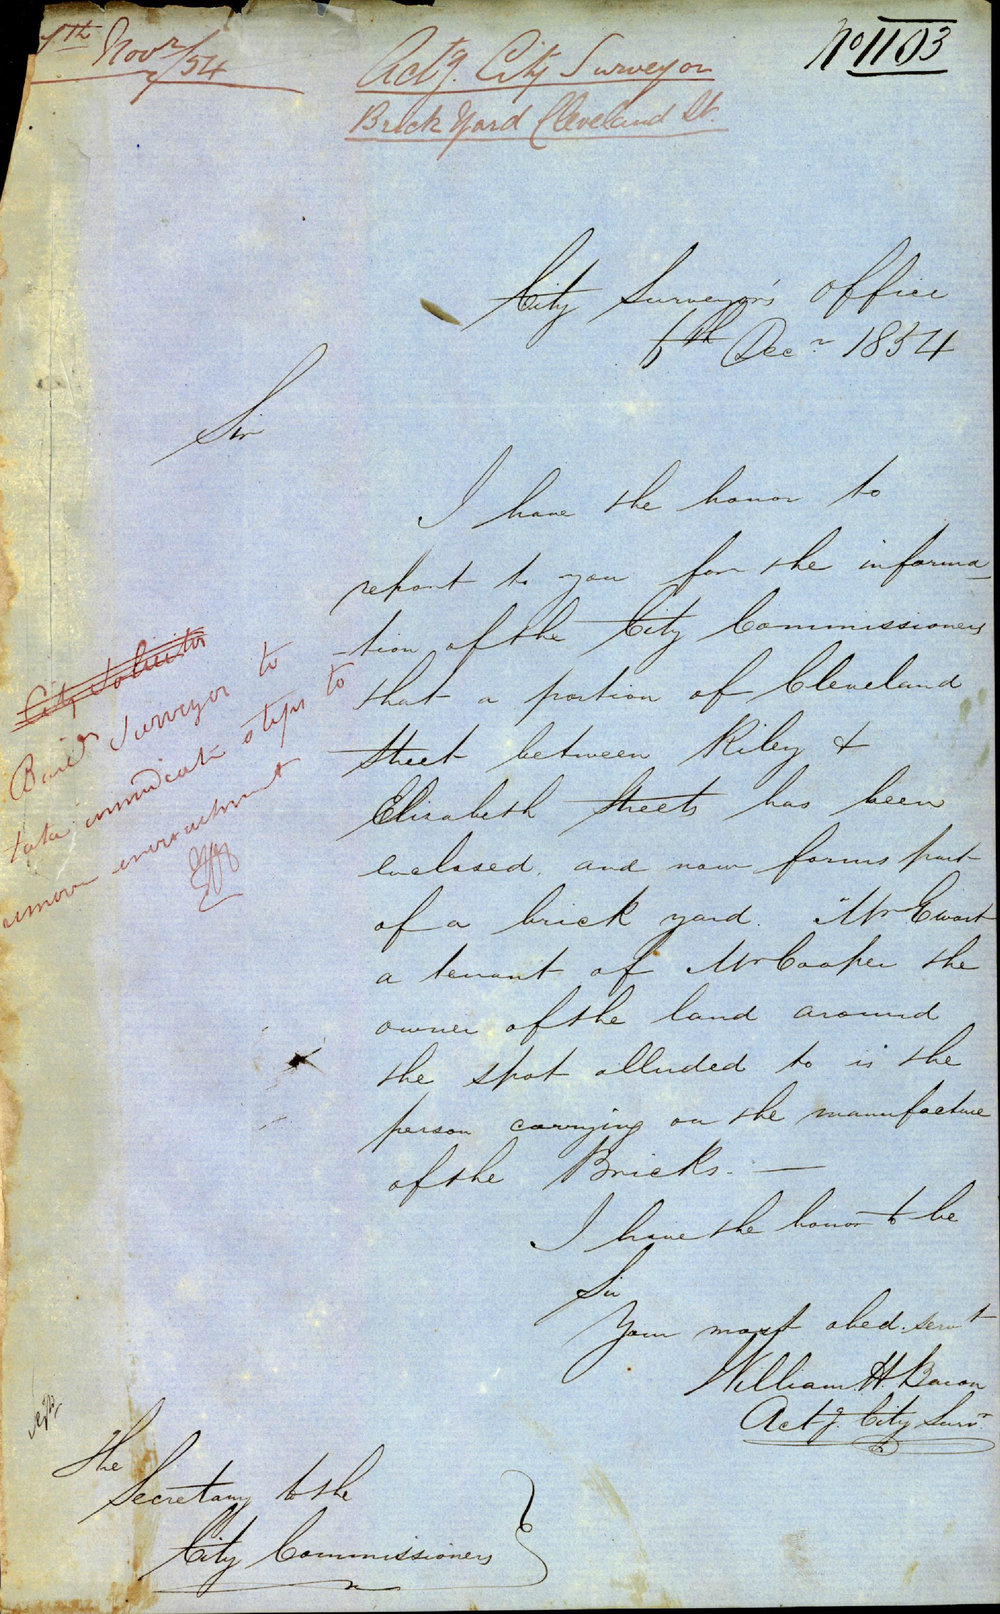 7th Novr/54
Actg. City Surveyor
Brick Yard Cleveland St.
No 1103
City Surveyor's Office
6th Decr 1854
Sir
I have the honor to
report to you for the informa-
-tion of the City Commissioners
that a portion of Cleveland
Street between Riley &
Elizabeth Streets has been
enclosed. and now forms part
of a brick yard. Mr Ewart
a tenant of Mr Cooper the
owner of the land around
the spot alluded to is the
person carrying on the manufacture
of the Bricks. —
I have the honor to be
Sir
Your most obed. servt
William H. Bacon
Actg. City Survr.
City Solicitor
Surveyor to
take immediate steps to
remove encroachment
The
Secretary to the
City Commissioners